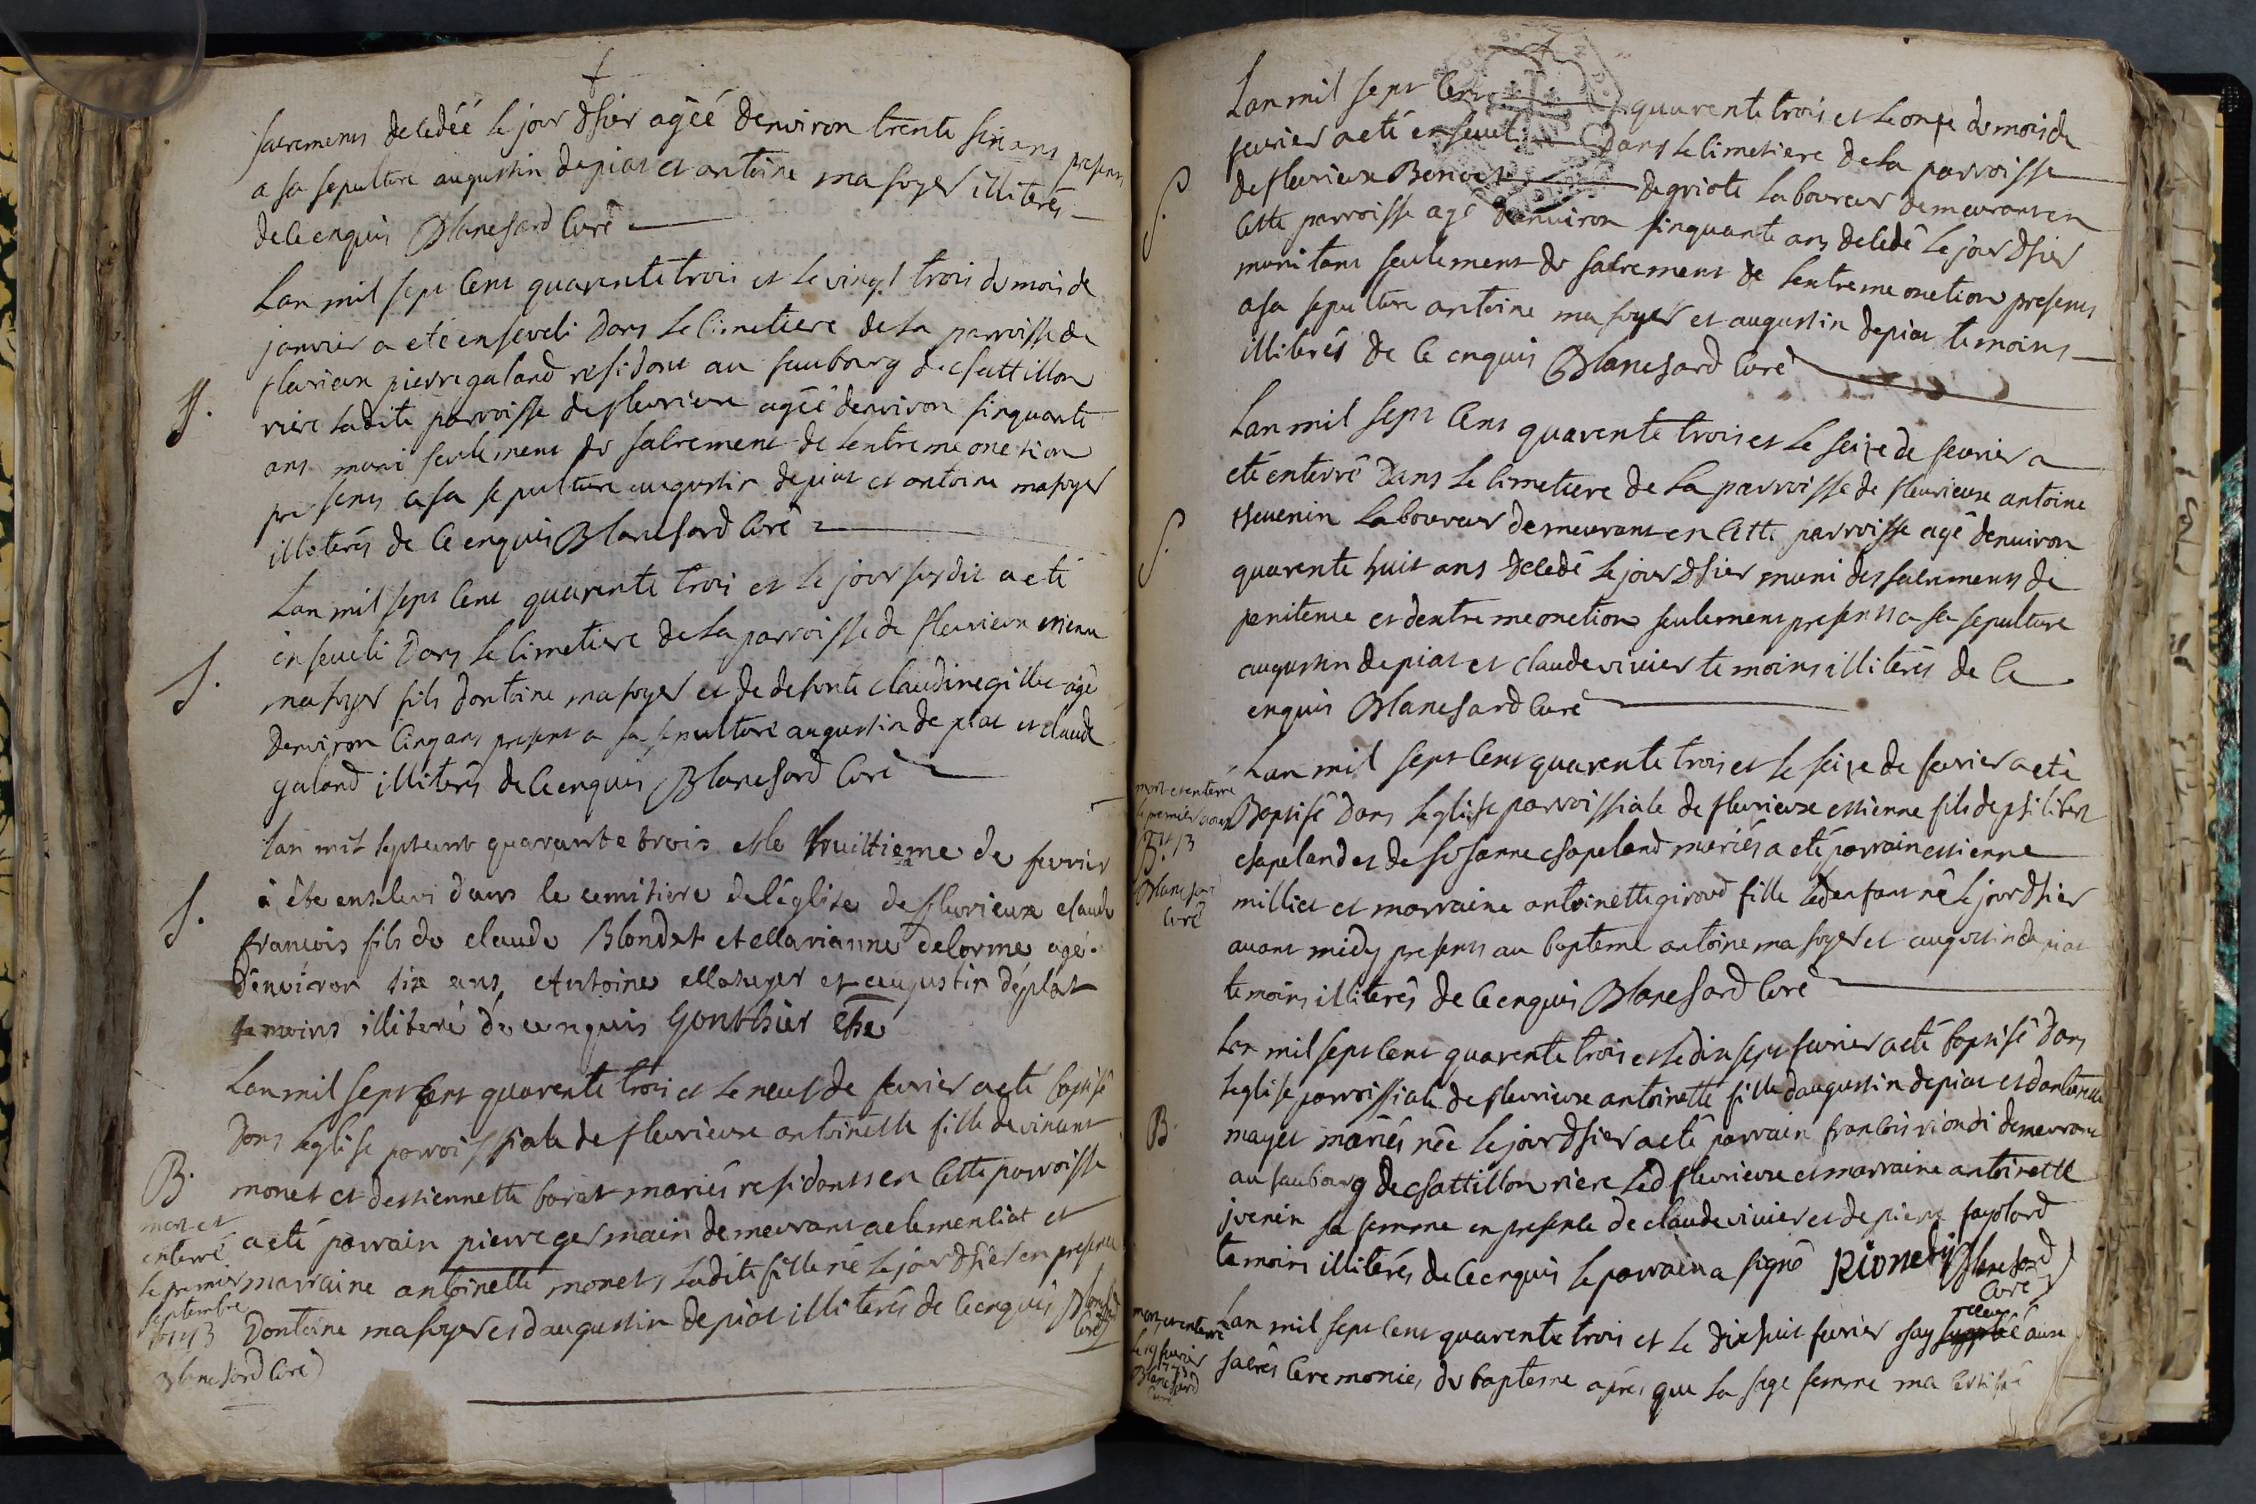 sacrements decedéé le jour dhier agéé denviron trente six ans presens
a sa sepulture augustin depiat et antoine masoyer illiterés
de ce enquis Blanchard Curé
Lan mil sept Cent quarente trois et le vingt trois du mois de
janvier a eté enseveli Dans le Cimetiere de la parroisse de
fleurieux pierre galand residant au faubourg de chattillon
riere ladite parroisse de fleurieux agéé denviron sinquante
S.
ans muni seulement du sacrement de lextreme onction
presens a sa sepulture augustin depiat et antoine masoyer
illiterés de Ce enquis Blanchard Curé
Lan mil sept Cent quarente trois et le jour susdit a eté
enseveli Dans le Cimetiere de la parroisse de fleurieux etienne
S.
masoyer fils dantoine masoyer et de defunte claudine gillet agé
denviron Cinq ans present a sa sepulture augustin de piat et claude
galand illiterés de Ce enquis Blanchard Curé
lan mil sept cent quarante trois et le huittieme de fevrier
à été enseluvi dans le cemitiere de l'église de flurieux claude
S.
francois fils de claude Blondet et Marianne delorme agé
d'environ six ans, Antoine Masuyer et augustin déplat
temoins illiteré de ce enquis Gonthier
Lan mil sept Cent quarente trois et le neuf de fevrier a eté baptisé
Dans leglise parroissiale de fleurieux antoinette fille de vincent
B.
monet et destiennette borat mariés residants en Cette parroisse
a eté parrain pierre germain demeurant a clemenciat et
marraine antoinette monet, ladite fille né le jour dhier en presence
Dantoine masoyer et daugustin depiat illiterés de Ce enquis Blanchard
Curé
mort et
enterré
le premier
septembre
1743
Blanchard Curé
Lan mil sept Cent quarente trois et le onze du mois de
fevrier a eté enseveli Dans le Cimetiere de la parroisse
S.
de fleurieux Benoit degriote laboureur demeurant en
Cette parroisse agé denviron sinquante ans decedé le jour dhier
muni tant seulement du sacrement de lextreme onction presens
a sa sepulture antoine masoyer et augustin depiat temoins
illiterés de Ce enquis Blanchard Curé
Lan mil sept Cent quarente trois et le seize de fevrier a
eté enterré Dans le Cimetiere de la parroisse de fleurieux antoine
S.
thevenin laboureur demeurant en Cette parroisse agé denviron
quarente huit ans decedé le jour dhier muni des sacrements de
penitence et dextreme onction seulement presents a sa sepulture
augustin depiat et claude vivier temoins illiterés de Ce
enquis Blanchard Curé
Lan mil sept Cent quarente trois et le seize de fevrier a eté
Baptisé Dans leglise parroissiale de fleurieux estienne fils de philibert
chapeland et de susanne chapeland mariés a eté parrain estienne
milliet et marraine antoinette giroud fille led enfant né le jour dhier
avant midy presents au bapteme antoine masoyer et augustin depiat
temoins illiterés de Ce enquis Blanchard Curé
mort et enterré
le premier
B.
Blanchard
Curé
Lan mil sept Cent quarente trois et le dix sept fevrier a eté baptisé Dans
leglise parroissiale de fleurieux antoinette fille daugustin depiat et
B.
mayet mariés née le jour dhier a eté parrain francois riondi demeurant
au faubourg de chattillon riere led fleurieux et marraine antoinette
jvenin sa femme en presence de claude vivier et de pierre fayolard
temoins illiterés de Ce enquis le parrain a signé Rionedy Blanchard
Curé
Lan mil sept Cent quarente trois et le dix huit fevrier jay aux
sacrés Ceremonies du bapteme apres que la sage femme ma Certifié
mort et enterré
le 19 fevrier
1743
Blanchard
Curé